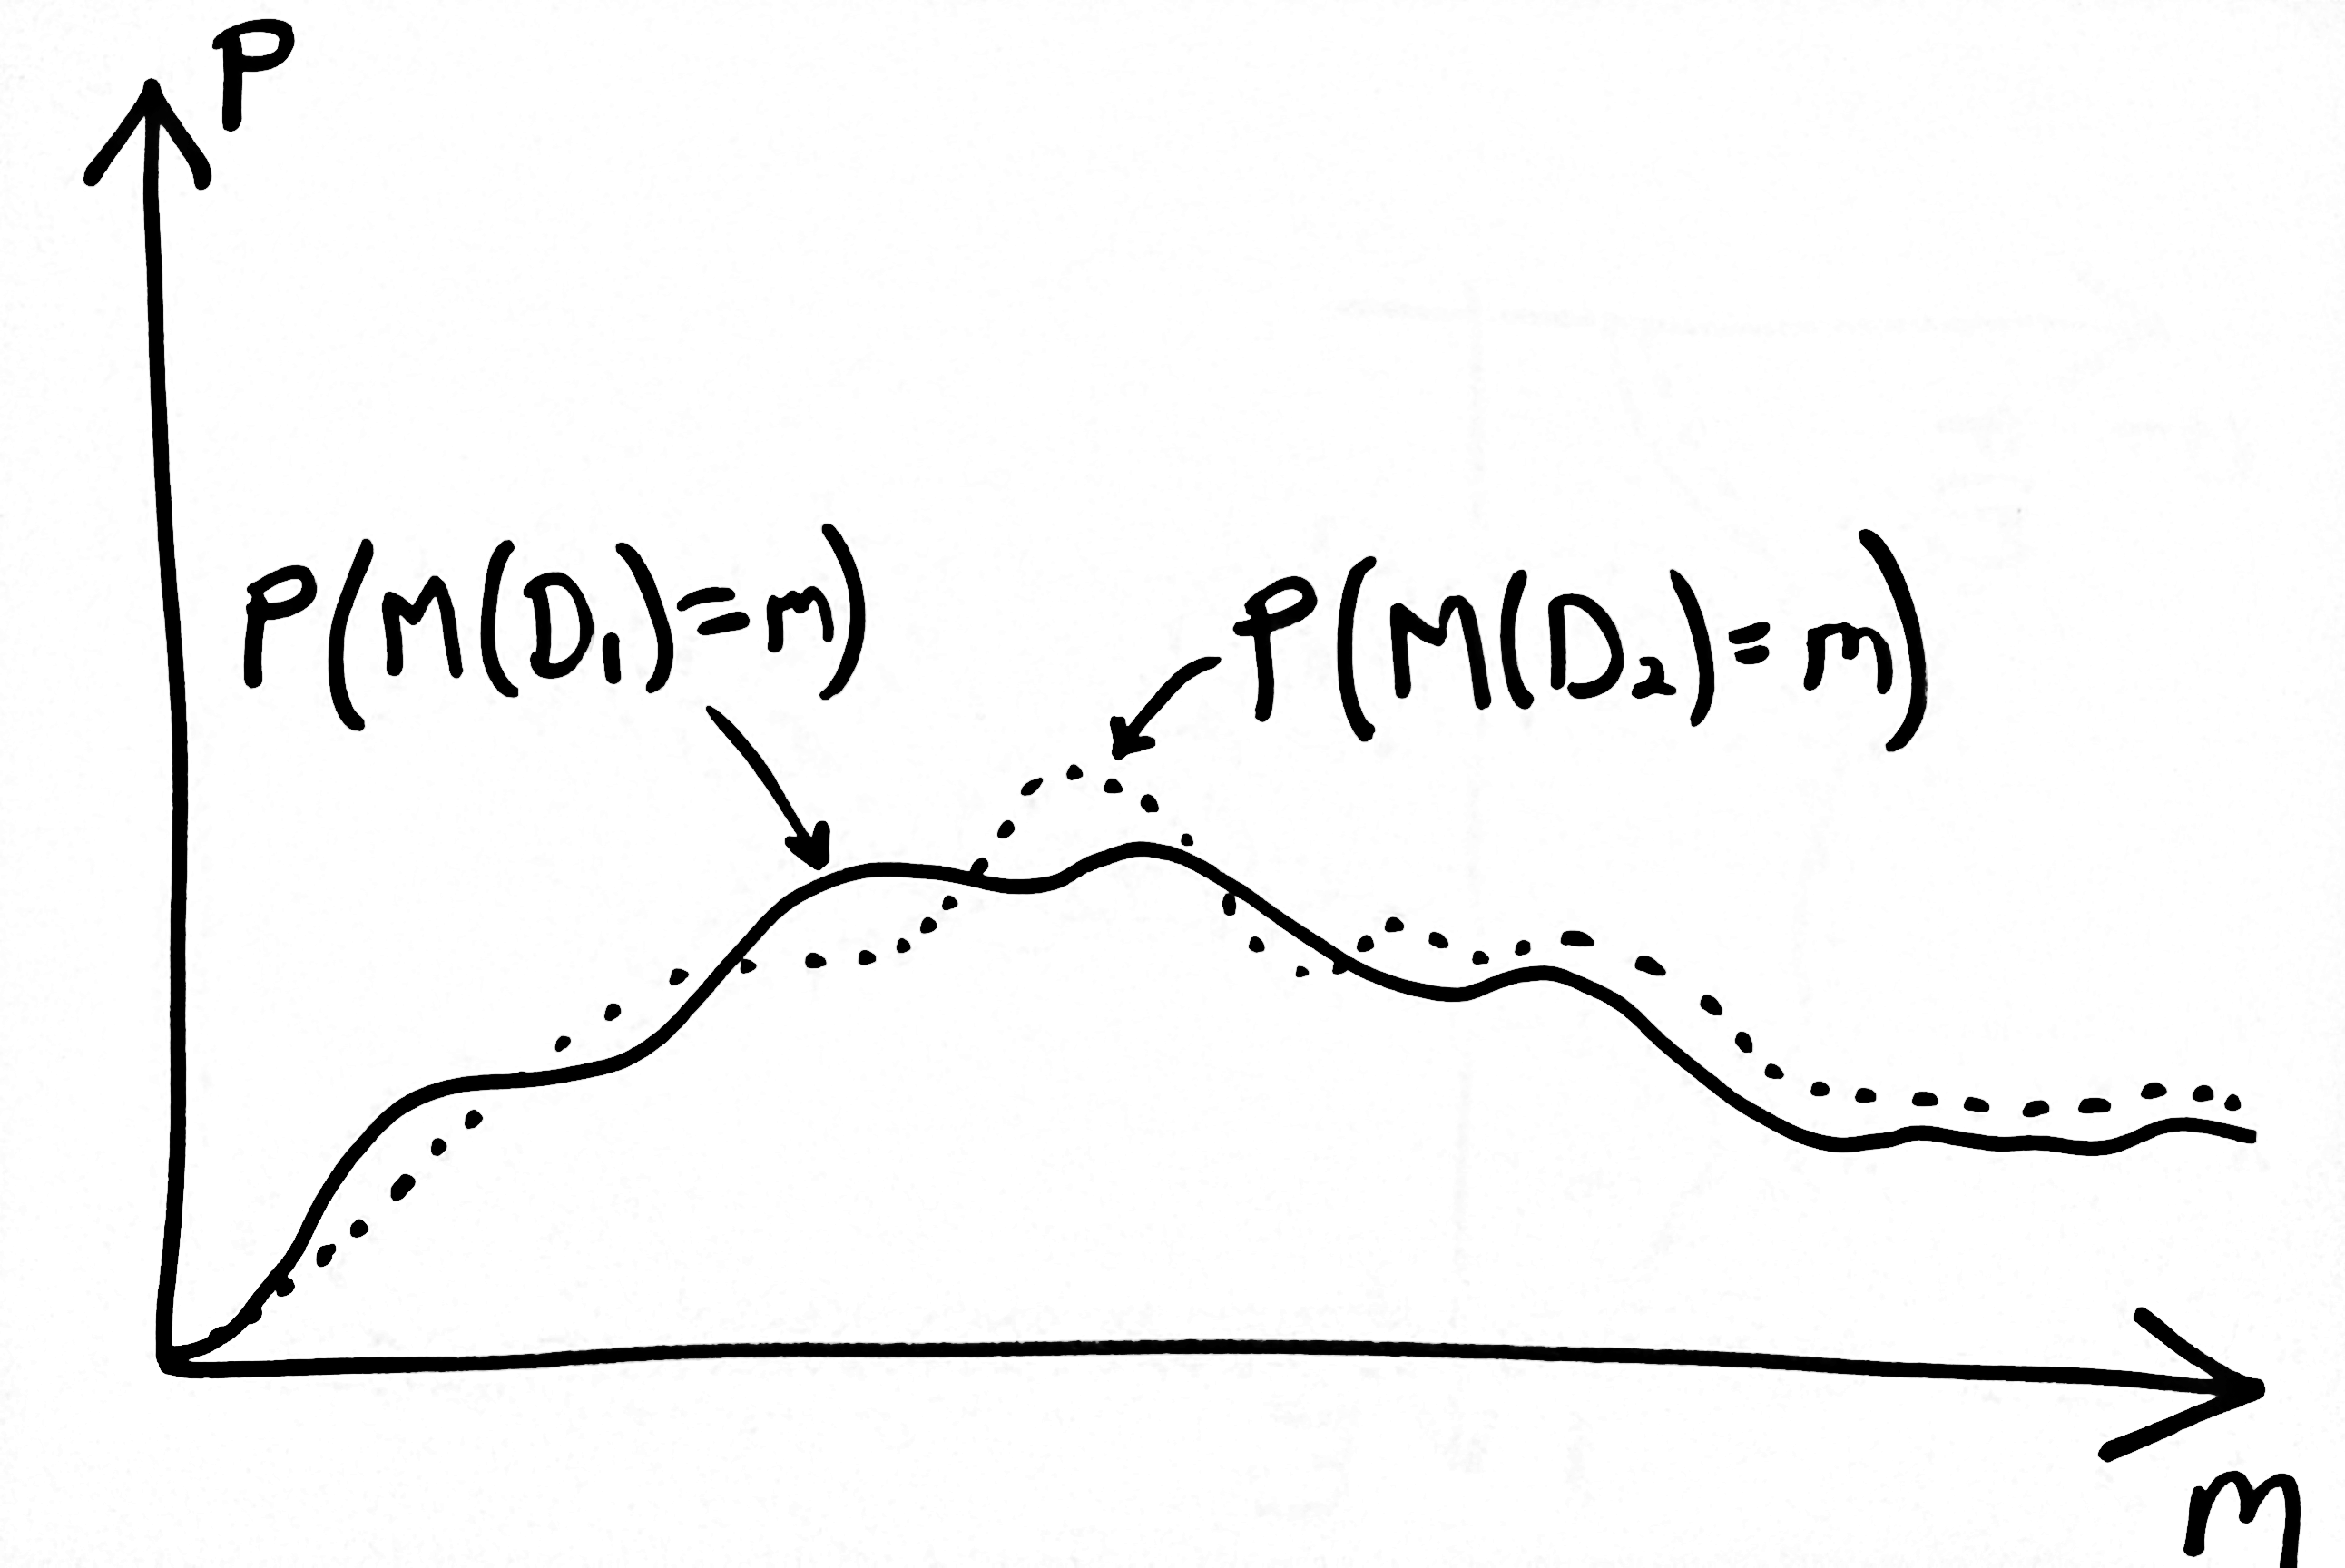 P
P(M(D₁)=m)
P(M(D₂)=m)
m